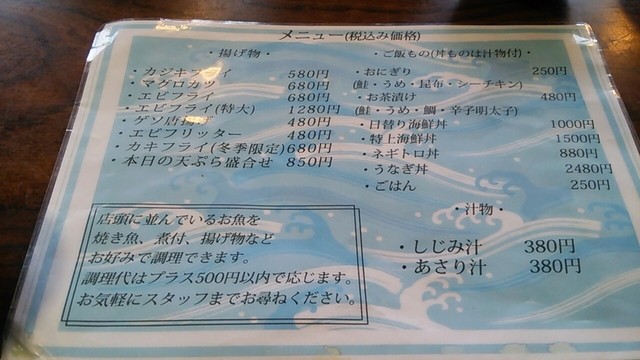 メニュー(税込み価格)
・揚げ物・
・カジキフライ 580円
・マグロカツ 680円
・エビフライ 680円
・エビフライ(特大) 1280円
・ゲソ唐揚げ 480円
・エビフリッター 480円
・カキフライ(冬季限定) 680円
・本日の天ぷら盛合せ 850円
店頭に並んでいるお魚を
焼き魚、煮付、揚げ物など
お好みで調理できます。
調理代はプラス500円以内で応じます。
お気軽にスタッフまでお尋ねください。
・ご飯もの(丼ものは汁物付)・
・おにぎり 250円
(鮭・うめ・昆布・シーチキン)
・お茶漬け 480円
(鮭・うめ・鯛・辛子明太子)
・日替り海鮮丼 1000円
・特上海鮮丼 1500円
・ネギトロ丼 880円
・うなぎ丼 2480円
・ごはん 250円
・汁物・
・しじみ汁 380円
・あさり汁 380円